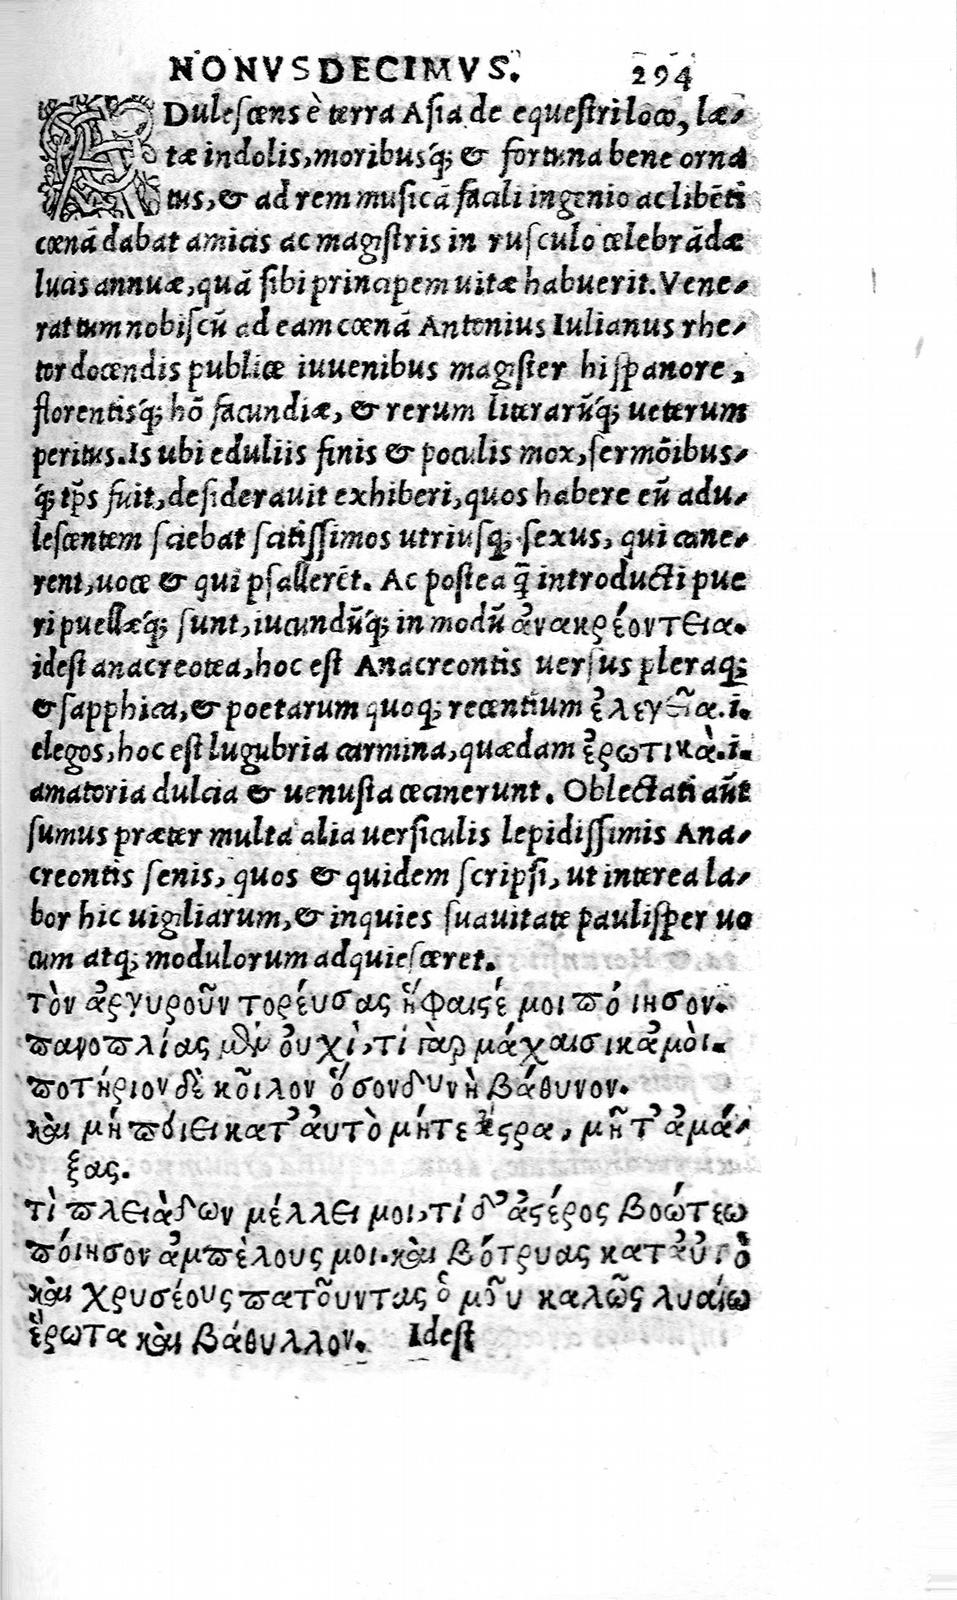 NONVSDECIMVS. 294
ADuleſcens è terra Aſia de equeſtri loco, læ-
tæ indolis, moribusq́; & fortuna bene orna
tus, & ad rem muſicã facili ingenio ac libẽti
cœnã dabat amicis ac magiſtris in ruſculo celebrãdæ
lucis annuæ, quã ſibi principem uitæ habuerit. Vene-
rat tum nobiſcũ ad eam cœnã Antonius Iulianus rhe-
tor docendis publice iuuenibus magiſter hiſpanore,
florentisq́; hõ facundiæ, & rerum literarũq́; ueterum
peritus. Is ubi eduliis finis & poculis mox, ſermõibus-
q́; tp̄s fuit, deſiderauit exhiberi, quos habere eũ adu-
leſcentem ſciebat ſcitiſſimos utriuſq; ſexus, qui cane-
rent, uoce & qui pſallerẽt. Ac poſtea q̃ introducti pue
ri puellæq́; ſunt, iucundũq́; in modũ ἀνακρέοντεια.
ideſt anacreotea, hoc eſt Anacreontis uerſus pleraq;
& ſapphica, & poetarum quoq; recentium ἐλεγεῖα. i.
elegos, hoc eſt lugubria carmina, quædam ἐρωτικὰ. i.
amatoria dulcia & uenuſta cecinerunt. Oblectati aũt
ſumus præter multa alia uerſiculis lepidiſſimis Ana-
creontis ſenis, quos & quidem ſcripſi, ut interea la-
bor hic uigiliarum, & inquies ſuauitate pauliſper uo
cum atq; modulorum adquieſceret.
τὸν ἀργυροῦν τορέυσας ἥφαιϛέ μοι ϖό ιησον.
ϖανοϖλίας μὲν ὀυχὶ, τί γὰρ μάχαισι κἀμὸι.
ϖοτήριον δὲ κοῖλον ὅσον δυνὴ βάθυνον.
καὶ μή ϖόιει κατ᾽ ἀυτὸ μήτε ἄϛρα, μῆτ᾽ ἀμά-
ξας.
τὶ ϖλειὰδων μέλλει μοι, τί δ᾽ ἀϛέρος βοώτεω
ϖόιησον ἀμϖὲλους μοι. καὶ βότρυας κατ ἀυτὸ
καὶ χρυσέους ϖατοῦντας ὁ μοῦ καλῶς λυαίω
ἔρωτα καὶ βάθυλλον. Ideſt